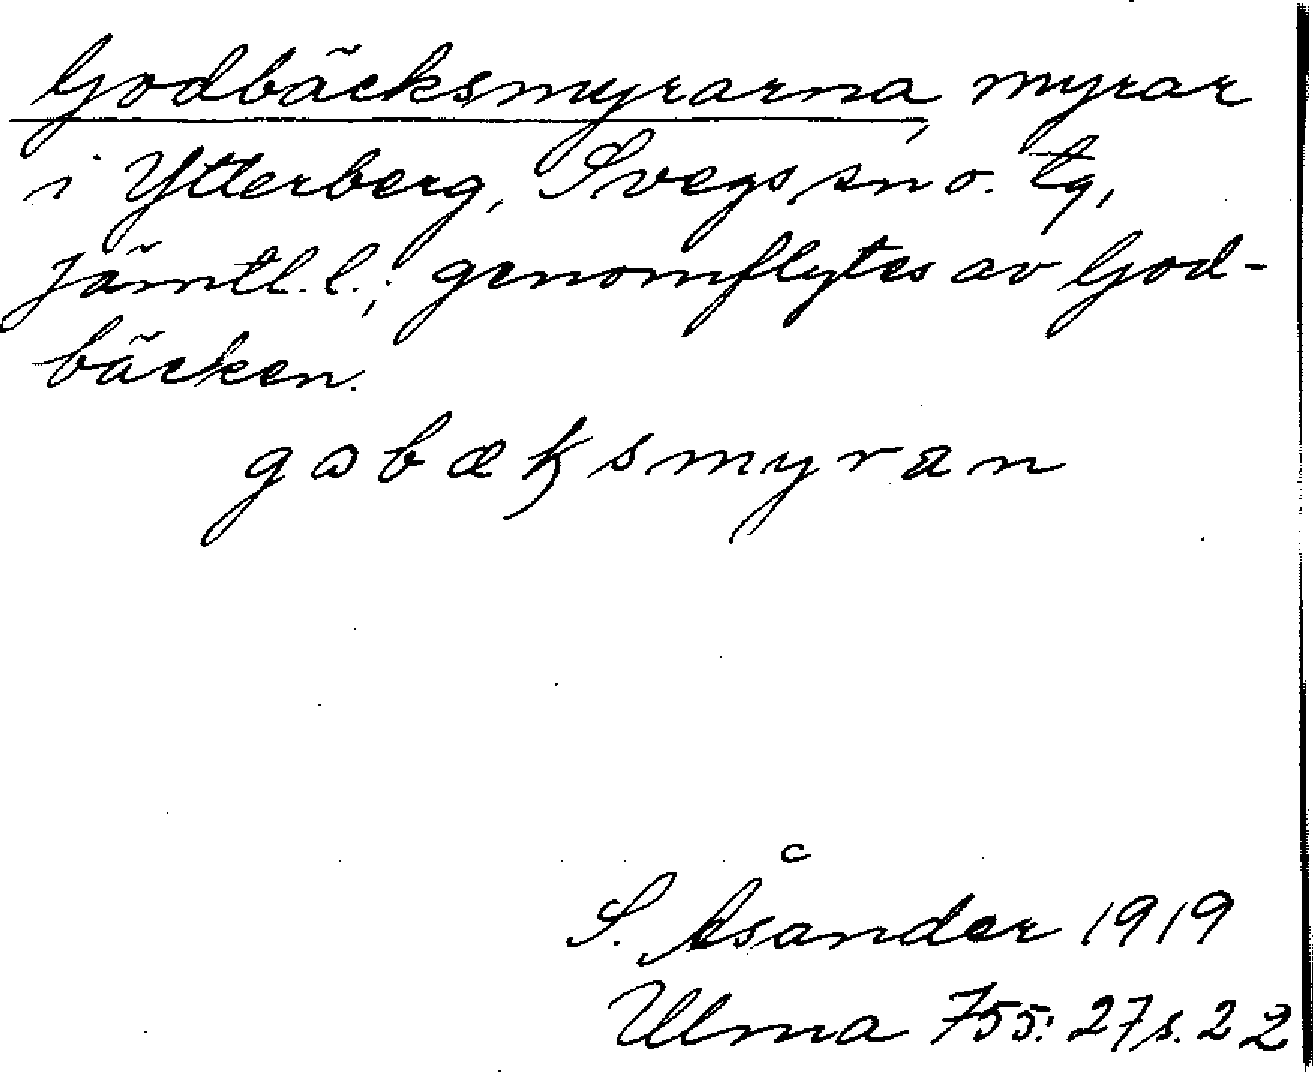 Godbäcksmyrarna, myrar
i Ytterberg, Svegs sn o. tg,
Jämtl. l.; genomflytes av God-
bäcken.
gobæksmyran
S. Åsander 1919
Ulma 755: 27 s. 22